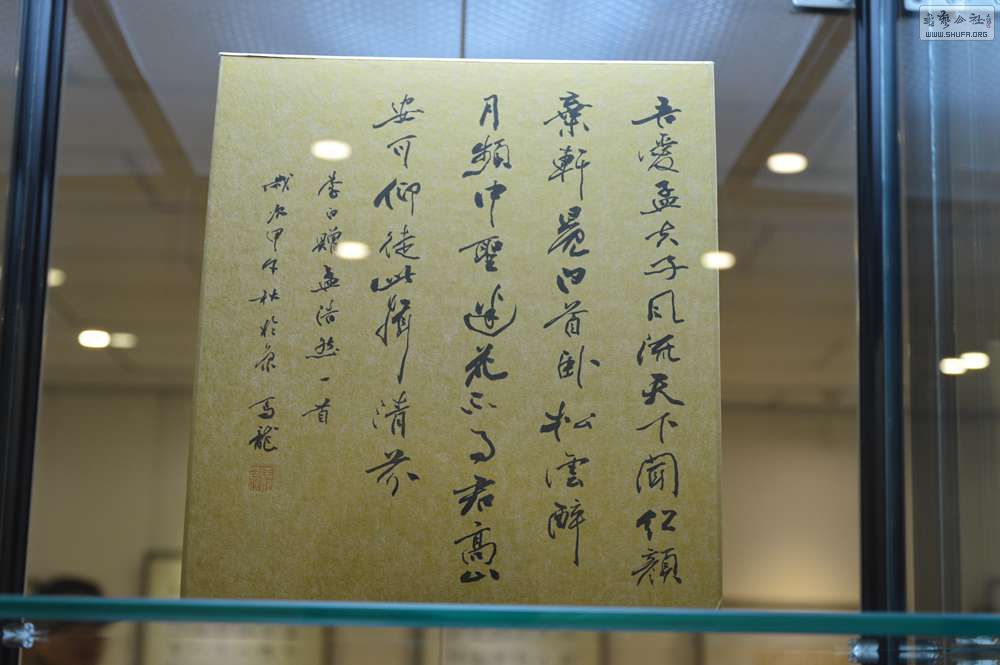 吾愛孟夫子風流天下聞紅顔
棄軒冕白首卧松雲醉
月頻中聖迷花不事君高山
安可仰徒此揖清芬
李白贈孟浩然一首
歲次甲午秋於京 馬龍
書藝公社
WWW.SHUFA.ORG